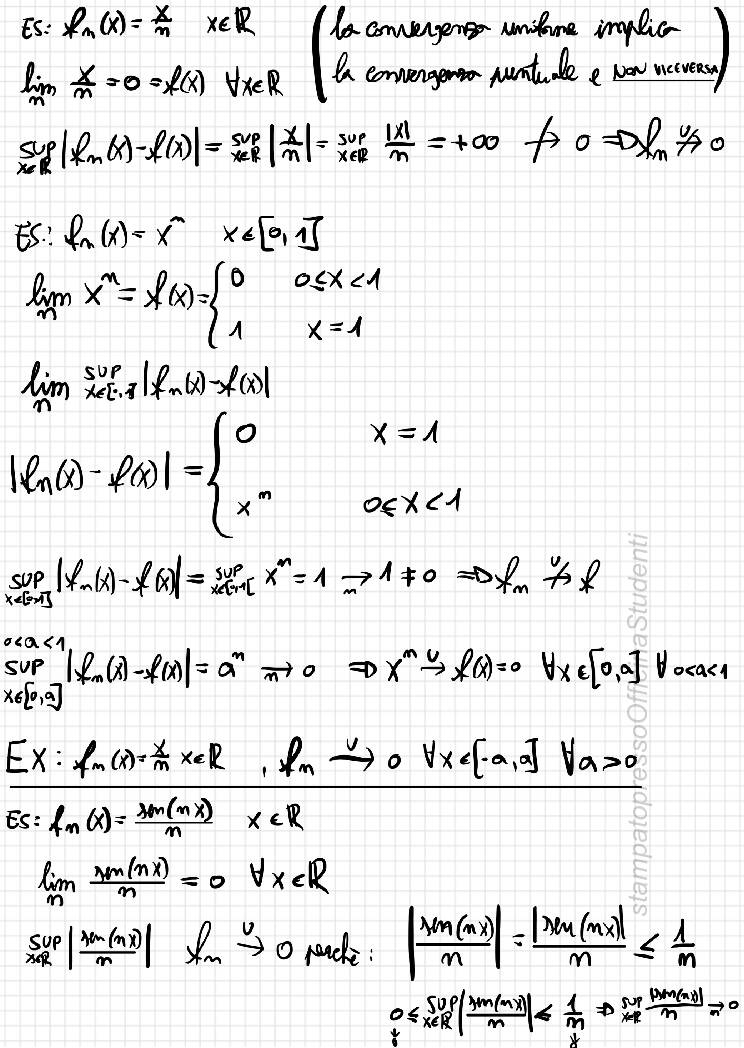 ES: fₙ(x) = x/n   x∈ℝ   (la convergenza uniforme implica
la convergenza puntuale e NON VICEVERSA)
lim_n x/n = 0 = f(x)   ∀x∈ℝ
SUP_{x∈ℝ} |fₙ(x) - f(x)| = SUP_{x∈ℝ} |x/n| = SUP_{x∈ℝ} |x|/n = +∞ ↛ 0 ⇒ fₙ ↛^U 0
ES: fₙ(x) = xⁿ   x∈[0,1]
lim_n xⁿ = f(x) = { 0   0≤x<1
1   x=1
lim_n SUP_{x∈[0,1]} |fₙ(x) - f(x)|
|fₙ(x) - f(x)| = { 0   x=1
xⁿ   0≤x<1
SUP_{x∈[0,1]} |fₙ(x) - f(x)| = SUP_{x∈[0,1[} xⁿ = 1 →_n 1 ≠ 0 ⇒ fₙ ↛^U f
0<a<1
SUP_{x∈[0,a]} |fₙ(x) - f(x)| = aⁿ →_n 0 ⇒ xⁿ →^U f(x) = 0   ∀x∈[0,a]   ∀ 0<a<1
EX: fₙ(x) = x/n   x∈ℝ , fₙ →^U 0   ∀x∈[-a,a]   ∀a>0
ES: fₙ(x) = sen(nx)/n   x∈ℝ
lim_n sen(nx)/n = 0   ∀x∈ℝ
SUP_{x∈ℝ} |sen(nx)/n|   fₙ →^U 0 perchè: |sen(nx)/n| = |sen(nx)|/n ≤ 1/n
0 ≤ SUP_{x∈ℝ} |sen(nx)/n| ≤ 1/n ⇒ SUP_{x∈ℝ} |sen(nx)|/n →_n 0
↓ ↓
stampatopressoOfficinaStudenti